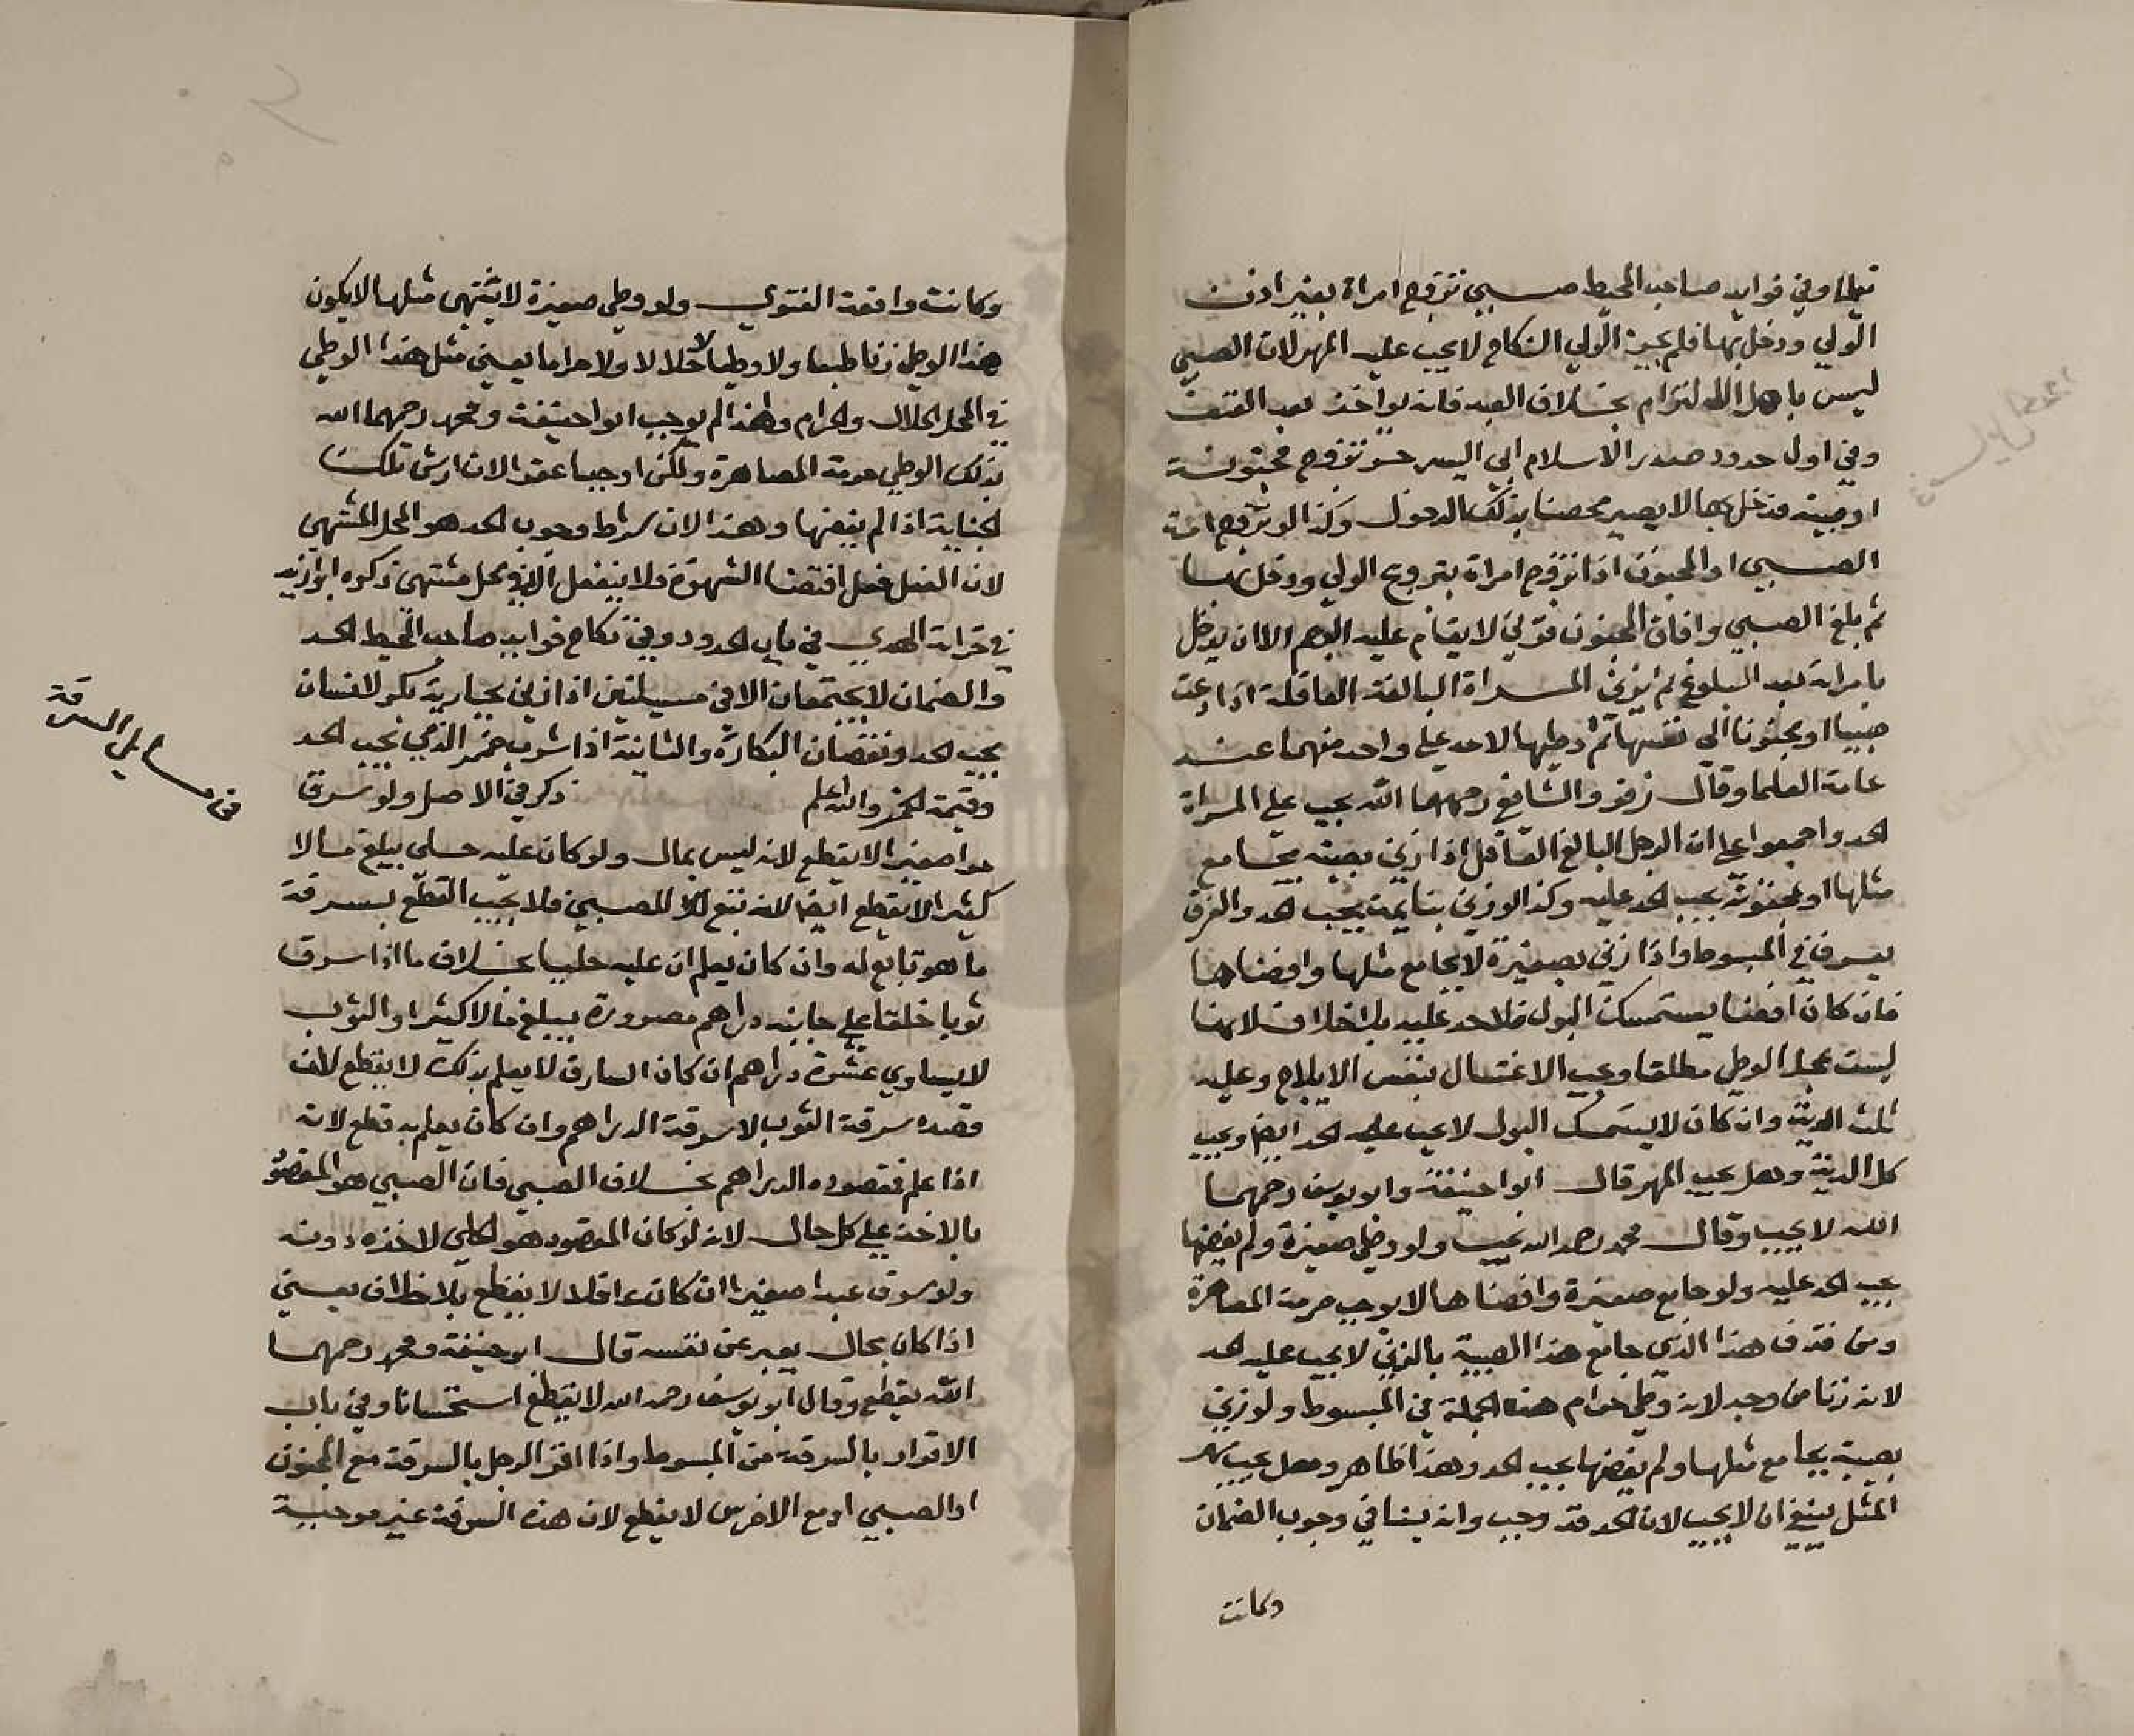 وفي فوايد صاحب المحيط صبي تزوج امراة بغير اذن
الولي ودخل بها فلم يجيز الولي النكاح لا يجب عليه المهر لان الصبي
ليس باهل الالتزام بخلاف العبد فانه يواخذ بعد العتق
وفي اول حدود صدر الاسلام ابي اليسر حر تزوج مجنونة
او صبية فدخل بها لا يصير محصنا بذلك الدخول وكذا لو تزوج امة
الصبي او المجنون اذا تزوج امراة بتزويج الولي ودخل بها
ثم بلغ الصبي وافاق المجنون فزني لا يقام عليه الرجم الا ان يدخل
بامراته بعد البلوغ ثم يزني المراة البالغة العاقلة اذا دعت
صبيا او مجنونا الي نفسها ثم وطيها لا حد علي واحد منهما عند
عامة العلما وقال زفر والشافعي رحمهما الله يجب علي المراة
الحد واجمعوا علي ان الرجل البالغ العاقل اذا زني بصبية يجامع
مثلها او مجنونة يجب الحد عليه وكذا لو زني بنايمة يجب الحد والفرق
يعرف في المبسوط واذا زني بصغيرة لا يجامع مثلها وافضاها
فان كان افضا يستمسك البول فلا حد عليه بلا خلاف لانها
ليست بمحل الوطي مطلقا ويجب الاغتسال بنفس الايلاج وعليه
ثلث الدية وان كان لا يستمسك البول لا يجب عليه الحد ايضا ويجب
كل الدية وهل يجب المهر قال ابو حنيفة وابو يوسف رحمهما
الله لا يجب وقال محمد رحمه الله يجب ولو وطي صغيرة ولم يفضها
يجب الحد عليه ولو جامع صغيرة وافضاها لا يوجب حرمة المصاهرة
ومن قذف هذا الذي جامع هذا الصبية بالزني لا يجب عليه الحد
لانه زنا من وجه لانه وطي حرام هذه الجملة في المبسوط ولو زني
بصبية يجامع مثلها ولم يفضها يجب الحد وهذا ظاهر وهل يجب مهر
المثل ينبغي ان لا يجب لان الحد قد وجب وانه ينافي وجوب الضمان
وكانت
وكانت واقعة الفتوي ولو وطي صغيرة لا يشتهي مثلها لا يكون
هذا الوطي زنا طبعا ولا وطيا حلالا ولا حراما يعني مثل هذا الوطي
في المحل الحلال والحرام ولهذا لم يوجب ابو حنيفة ومحمد رحمهما الله
بذلك الوطي حرمة المصاهرة ولكن اوجبا عقرا لان ارش تلك
الجناية اذا لم يفضها وهذا لان شرط وجوب الحد هو المحل المشتهي
لان الفعل فعل اقتضا الشهوة فلا ينفعل الا في محل مشتهي ذكره
في باب الحدود وفي نكاح فوايد صاحب المحيط الحد
والضمان لا يجتمعان الا في مسيلتين اذا زني بجارية بكر لانسان
يجب الحد ونقصان البكارة والثانية اذا شرب خمر الذمي يجب الحد
وقيمة الخمر والله اعلم ذكر في الاصل ولو سرق
حرا صغيرا لا يقطع لانه ليس بمال ولو كان عليه حلي يبلغ مالا
كثيرا لا يقطع ايضا لانه تبع للصبي فلا يجب القطع بسرقة
ما هو تابع له وان كان يعلم ان عليه حليا بخلاف ما اذا سرق
ثوبا خلقا علي جانبه دراهم مصرورة يبلغ مالا كثيرا والثوب
لا يساوي عشرة دراهم ان كان السارق لا يعلم بذلك لا يقطع لان
قصده سرقة الثوب لا سرقة الدراهم وان كان يعلم به قطع لانه
اذا علم فمقصوده الدراهم بخلاف الصبي فان الصبي هو المقصود
بالاخذ علي كل حال لانه لو كان المقصود هو الحلي لاخذه دونه
ولو سرق عبدا صغيرا ان كان عاقلا لا يقطع بلا خلاف يعني
اذا كان بحال يعبر عن نفسه قال ابو حنيفة ومحمد رحمهما
الله يقطع وقال ابو يوسف رحمه الله لا يقطع استحسانا وفي باب
الاقرار بالسرقة من المبسوط واذا اقر الرجل بالسرقة مع المجنون
او الصبي او مع الاخرس لا يقطع لان هذه السرقة غير موجبة
في مسايل السرقة